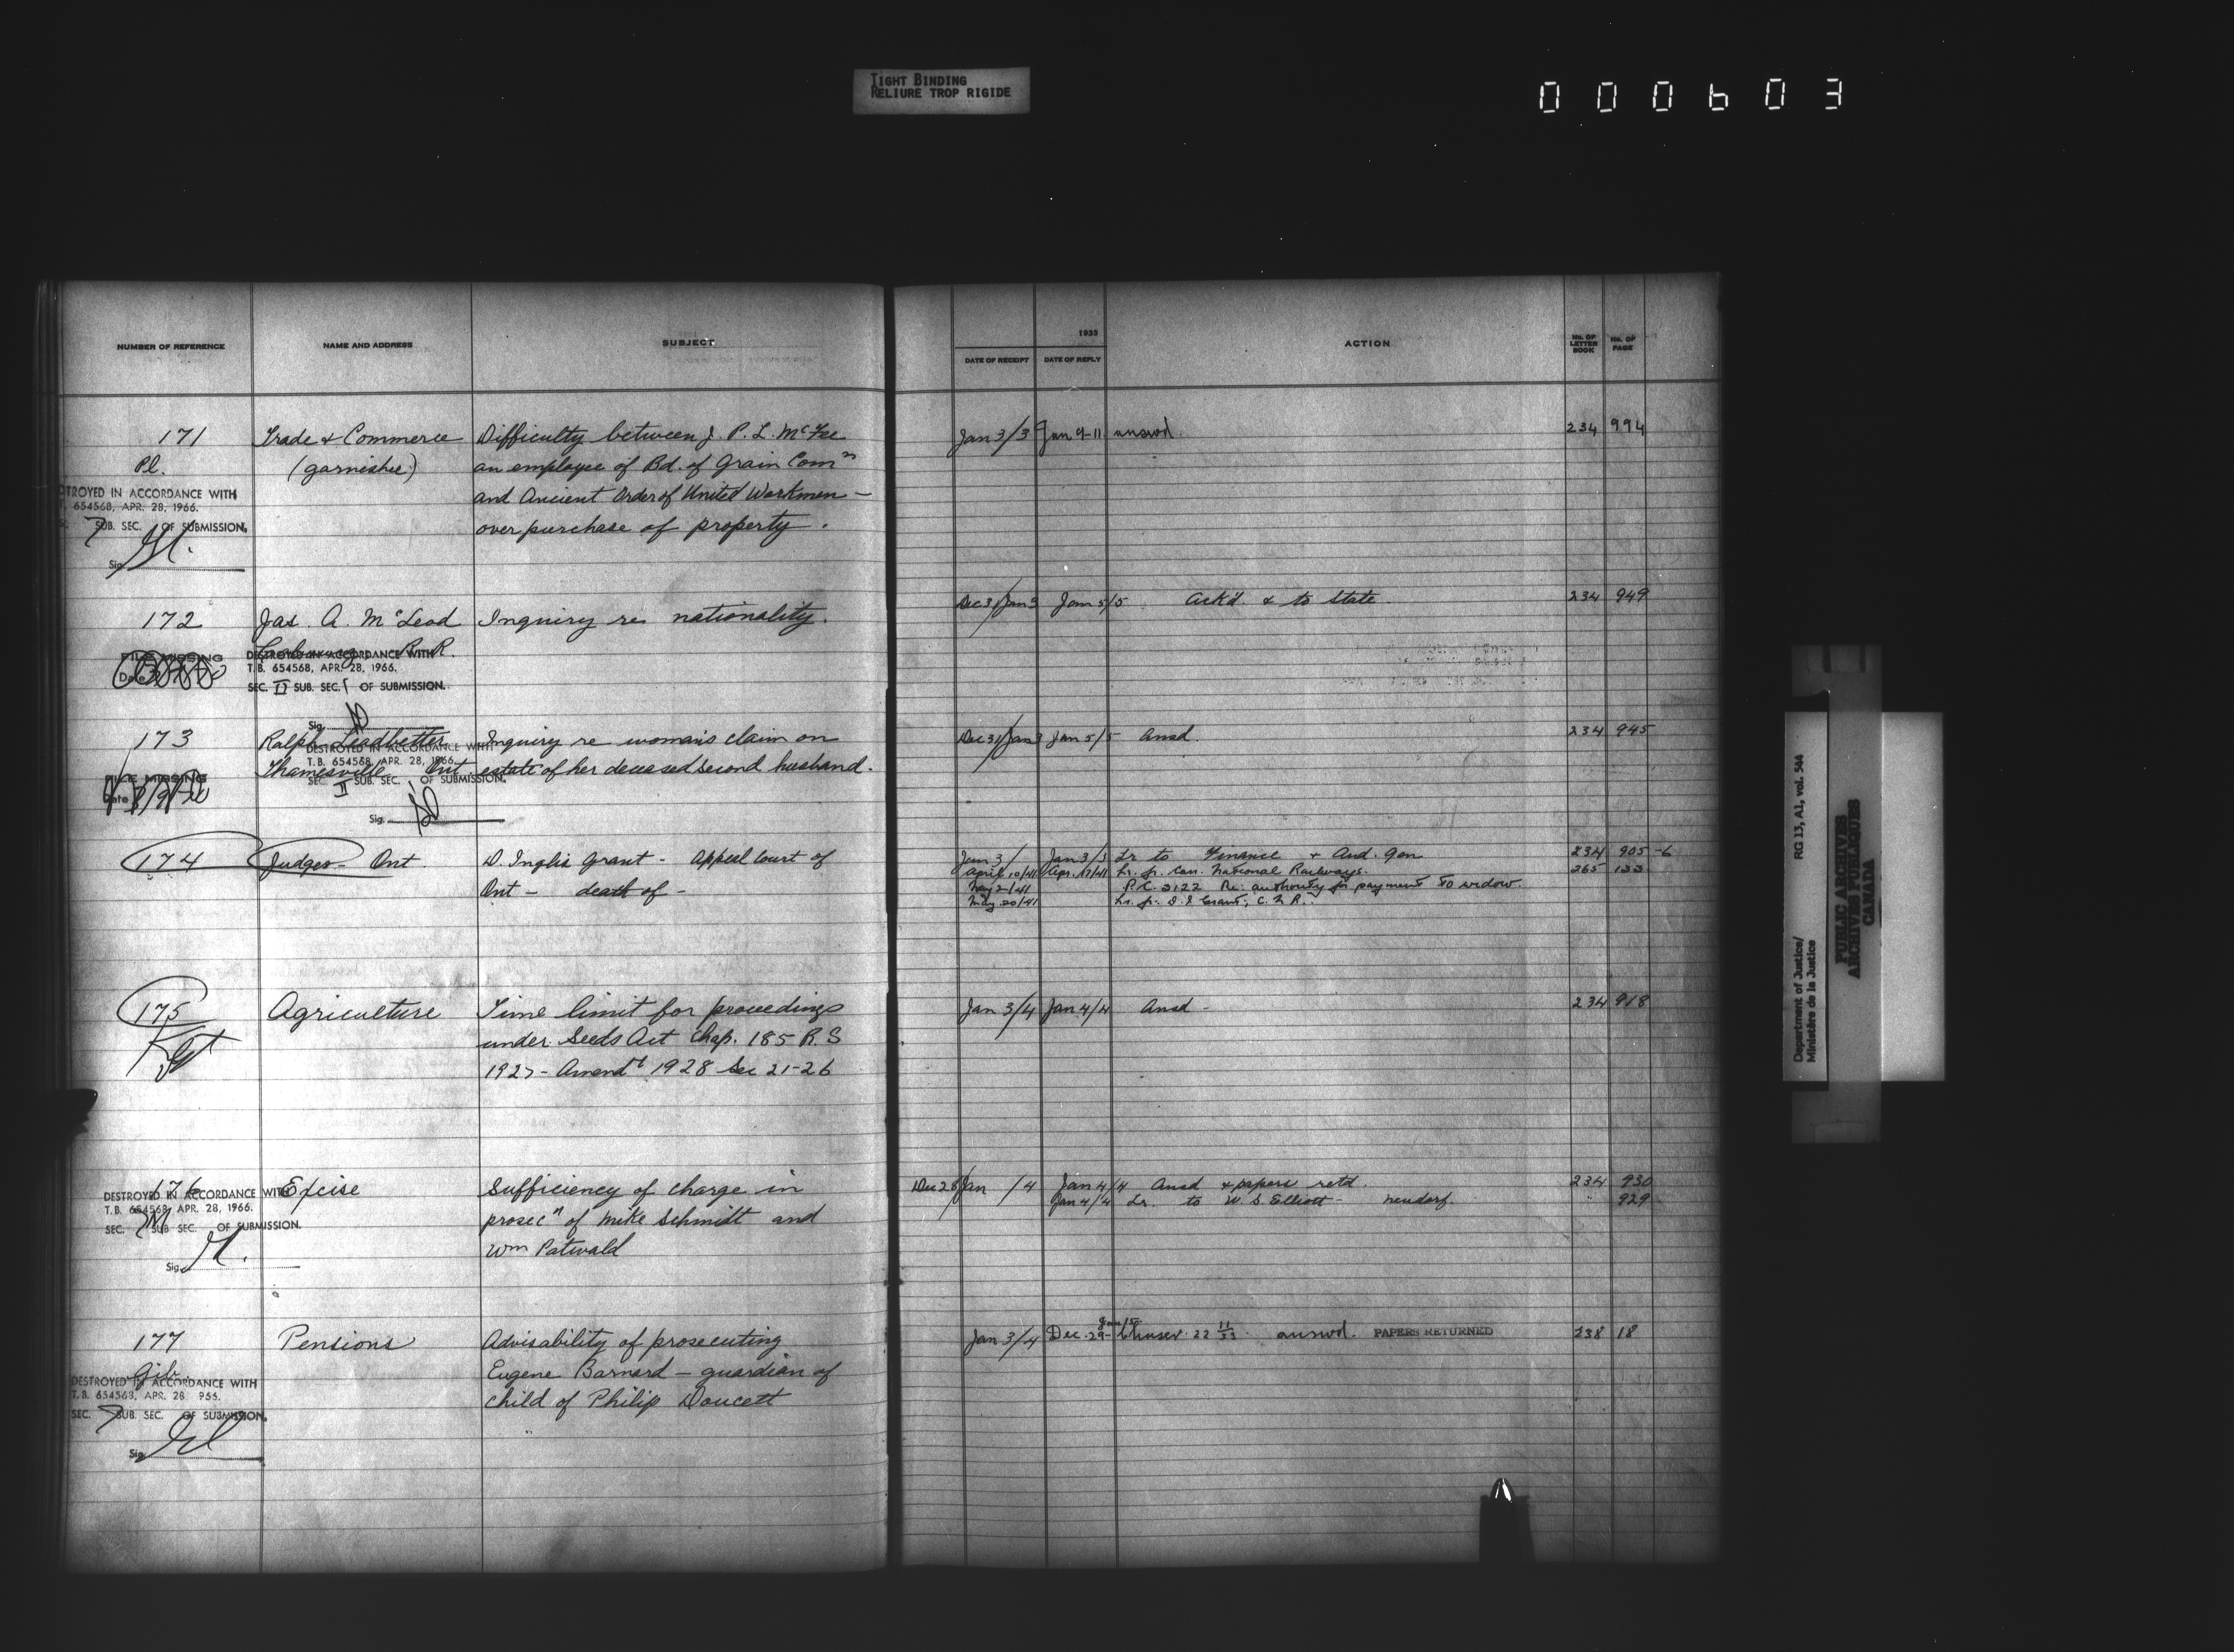 TIGHT BINDING
RELIURE TROP RIGIDE
000603
NUMBER OF REFERENCE
NAME AND ADDRESS
SUBJECT
1933
DATE OF RECEIPT
DATE OF REPLY
ACTION
No. OF LETTER BOOK
No. OF PAGE
171 Trade & Commerce Difficulty between J. P. L. McFee Jan 3/3 Jan 9-11 answd. 234 994
Pl. (garnishee) an employee of Bd. of Grain Comn
TROYED IN ACCORDANCE WITH and Ancient Order of United Workmen -
654568, APR. 28, 1966.
7 SUB. SEC. OF SUBMISSION. over purchase of property.
Sig.
172 Jas. A. McLeod Inquiry re nationality. Dec 31/Jan 3 Jan 5/5 Ackd. & to State 234 949
R.R.
FILE MISSING DESTROYED IN ACCORDANCE WITH
Date T.B. 654568, APR. 28, 1966.
SEC. II SUB. SEC. 1 OF SUBMISSION.
Sig.
173 Ralph Leadbetter Inquiry re woman's claim on Dec 31/Jan 3 Jan 5/5 Ansd. 234 945
DESTROYED IN ACCORDANCE WITH
T.B. 654568, APR. 28, 1966.
Thamesville Ont estate of her deceased second husband.
FILE MISSING SEC. II SUB. SEC. OF SUBMISSION.
Date
Sig.
174 Judges - Ont. D. Inglis Grant - Appeal Court of Jan 3/ Jan 3/3 Lr to Finance & Aud. Gen 234 905-6
April 10/41 Apr. 17/41 Lr. fr. Can. National Railways. 265 133
Ont - death of - May 2/41 P.C. 3122 Re: authority for payment to widow.
May 20/41 Lr. fr. D. I. Grant, C. N. R.
175 Agriculture Time limit for proceedings Jan 3/4 Jan 4/4 Ansd - 234 918
under Seeds Act Chap. 185 R.S
1927 - Amendt 1928 Sec 21-26
176 Excise Sufficiency of charge in Dec 28/Jan /4 Jan 4/4 Ansd & papers retd. 234 930
DESTROYED IN ACCORDANCE WITH
T.B. 654568, APR. 28, 1966.
Jan 4/4 Lr. to W. S. Elliott - Neudorf. " 929
SEC. SUB SEC. OF SUBMISSION. prosecn of Mike Schmidt and
Wm Patwald
Sig.
177 Pensions Advisability of prosecuting Jan 3/4 Dec. 29- 22 11/33 answd. PAPERS RETURNED 238 18
Eugene Barnard - guardian of
DESTROYED IN ACCORDANCE WITH
T.B. 654568, APR. 28 966.
child of Philip Doucett
SEC. 7 SUB. SEC. OF SUBMISSION.
Sig.
Department of Justice/
Ministère de la Justice
RG 13, A1, vol. 544
PUBLIC ARCHIVES
ARCHIVES PUBLIQUES
CANADA